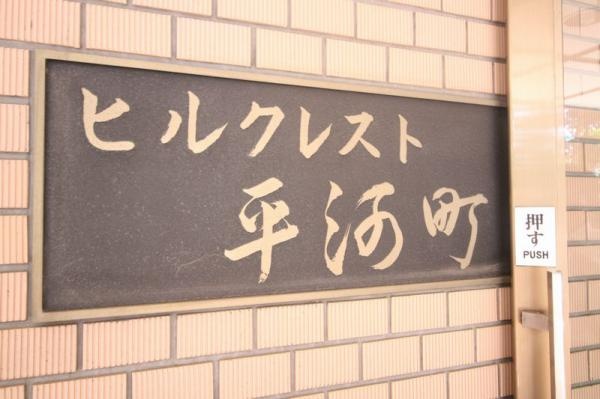 ヒルクレスト
平河町
押す
PUSH